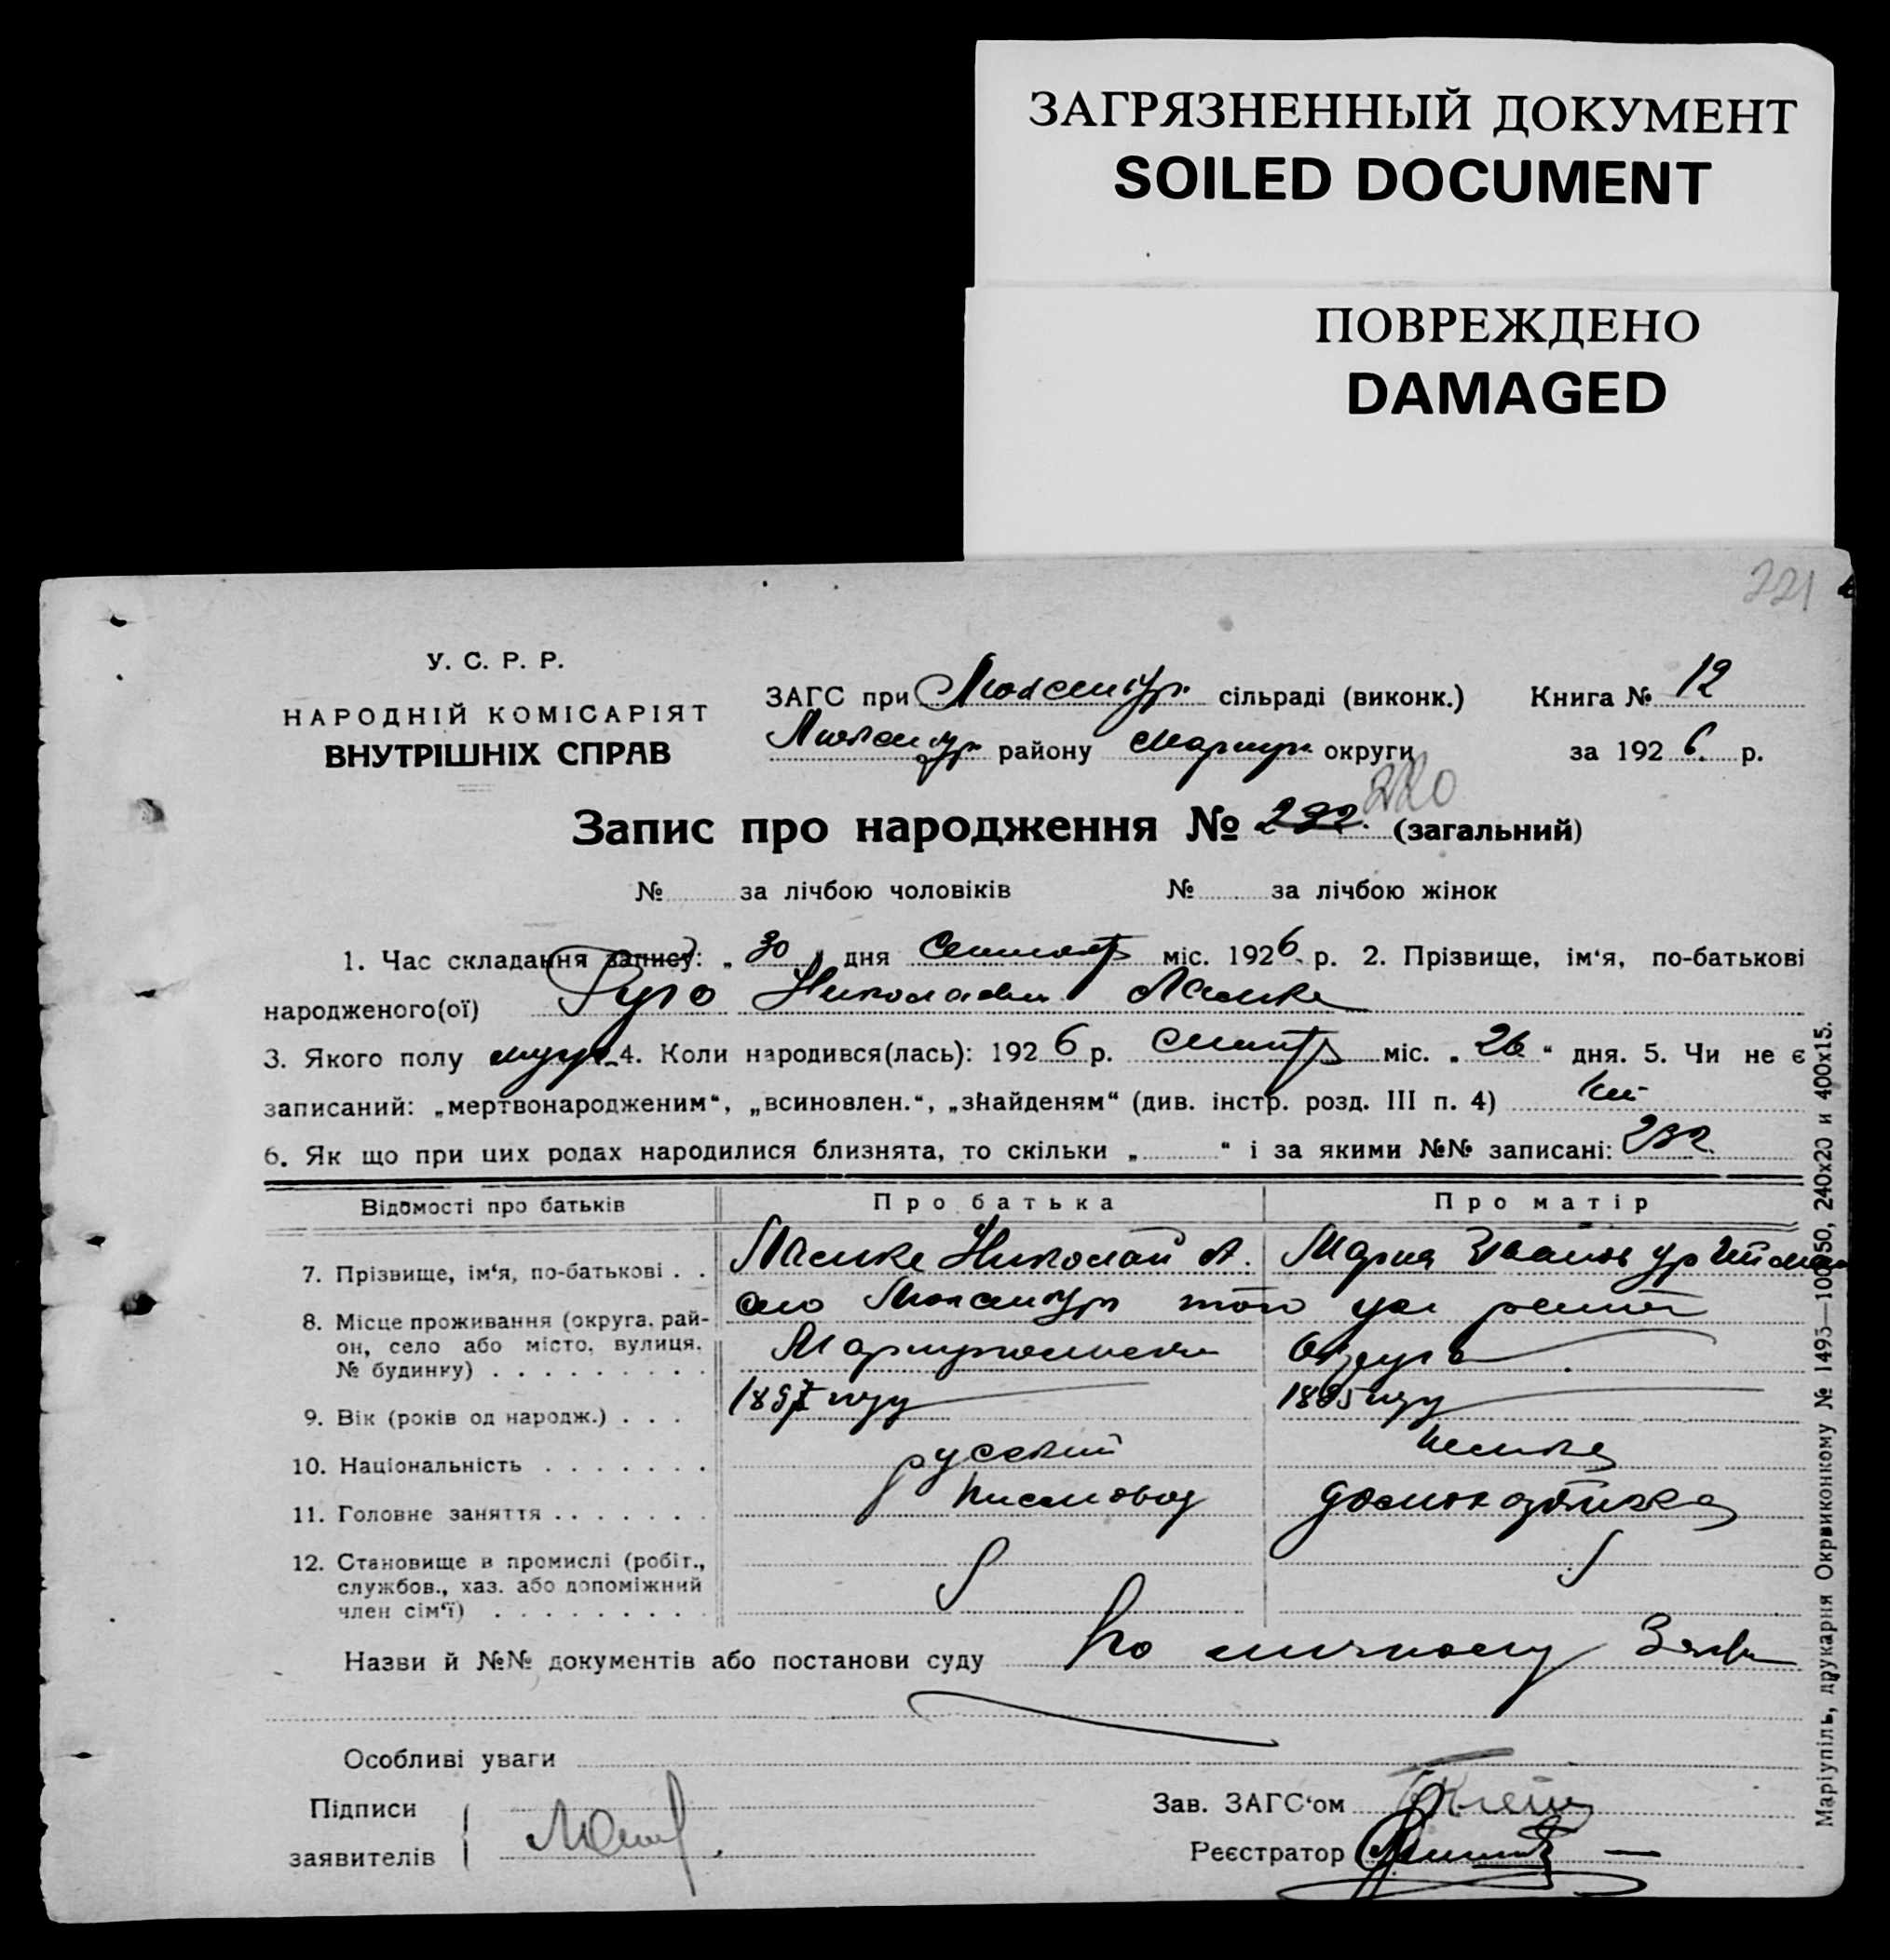 ЗАГРЯЗНЕННЫЙ ДОКУМЕНТ
SOILED DOCUMENT
ПОВРЕЖДЕНО
DAMAGED
221
У. С. Р. Р.
НАРОДНІЙ КОМІСАРІЯТ
ВНУТРІШНІХ СПРАВ
ЗАГС при сільраді (виконк.) Книга № 12
району Мариуп. округи за 1926 р.
220
Запис про народження № 232. (загальний)
№ за лічбою чоловіків № за лічбою жінок
1. Час складання запису: „30„ дня міс. 1926 р. 2. Прізвище, ім‘я, по-батькові
народженого(ої) Гуго Николаевич Ламке
3. Якого полу муж. 4. Коли народився(лась): 1926 р. міс. „26“ дня. 5. Чи не є
записаний: „мертвонародженим“, „всиновлен.“, „знайденям“ (див. інстр. розд. III п. 4)
6. Як що при цих родах народилися близнята, то скільки „ “ і за якими №№ записані: 232
Відомості про батьків Про батька Про матір
7. Прізвище, ім‘я, по-батькові . . Ламке Николай А. Мария Иванов
8. Місце проживання (округа, рай-
он, село або місто, вулиця,
№ будинку) село того
Мариупольский Округа
9. Вік (років од народж.) . . . году году
10. Національність . . . . . . . русский немка
11. Головне заняття . . . . . . . писмовод домохозяйка
12. Становище в промислі (робіт.,
службов., хаз. або допоміжний
член сім‘ї) . . . . . . . . .
Назви й №№ документів або постанови суду По личному Заяв
Особливі уваги
Підписи
заявителів
Зав. ЗАГС‘ом
Реєстратор
Маріупіль, друкарня Окрвиконкому № 1493—100х50, 240х20 и 400х15.